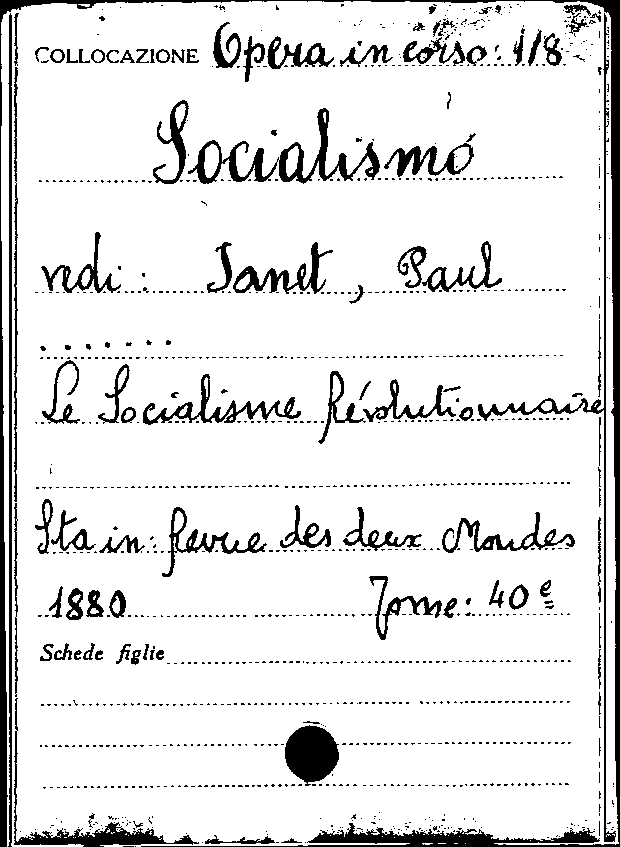 COLLOCAZIONE Opera in corso: 1/8
Socialismo
vedi: Janet, Paul
.......
Le Socialisme Révolutionnaire.
Sta in: Revue des deux Mondes
1880 Tome: 40e
Schede figlie